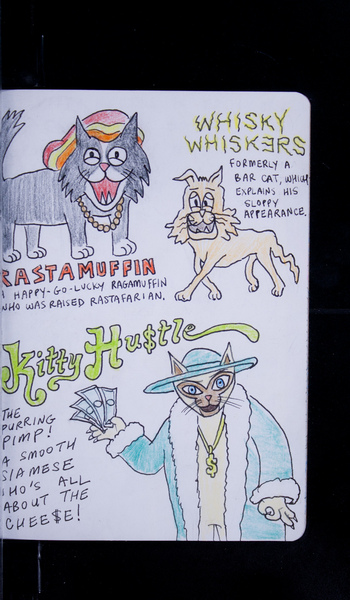 WHISKY
WHISKERS
FORMERLY A
BAR CAT, WHICH
EXPLAINS HIS
SLOPPY
APPEARANCE.
RASTAMUFFIN
A HAPPY-GO-LUCKY RAGAMUFFIN
WHO WAS RAISED RASTAFARIAN.
Kitty Hu$tle
THE
PURRING
PIMP!
A SMOOTH
SIAMESE
WHO'S ALL
ABOUT THE
CHEE$E!
$